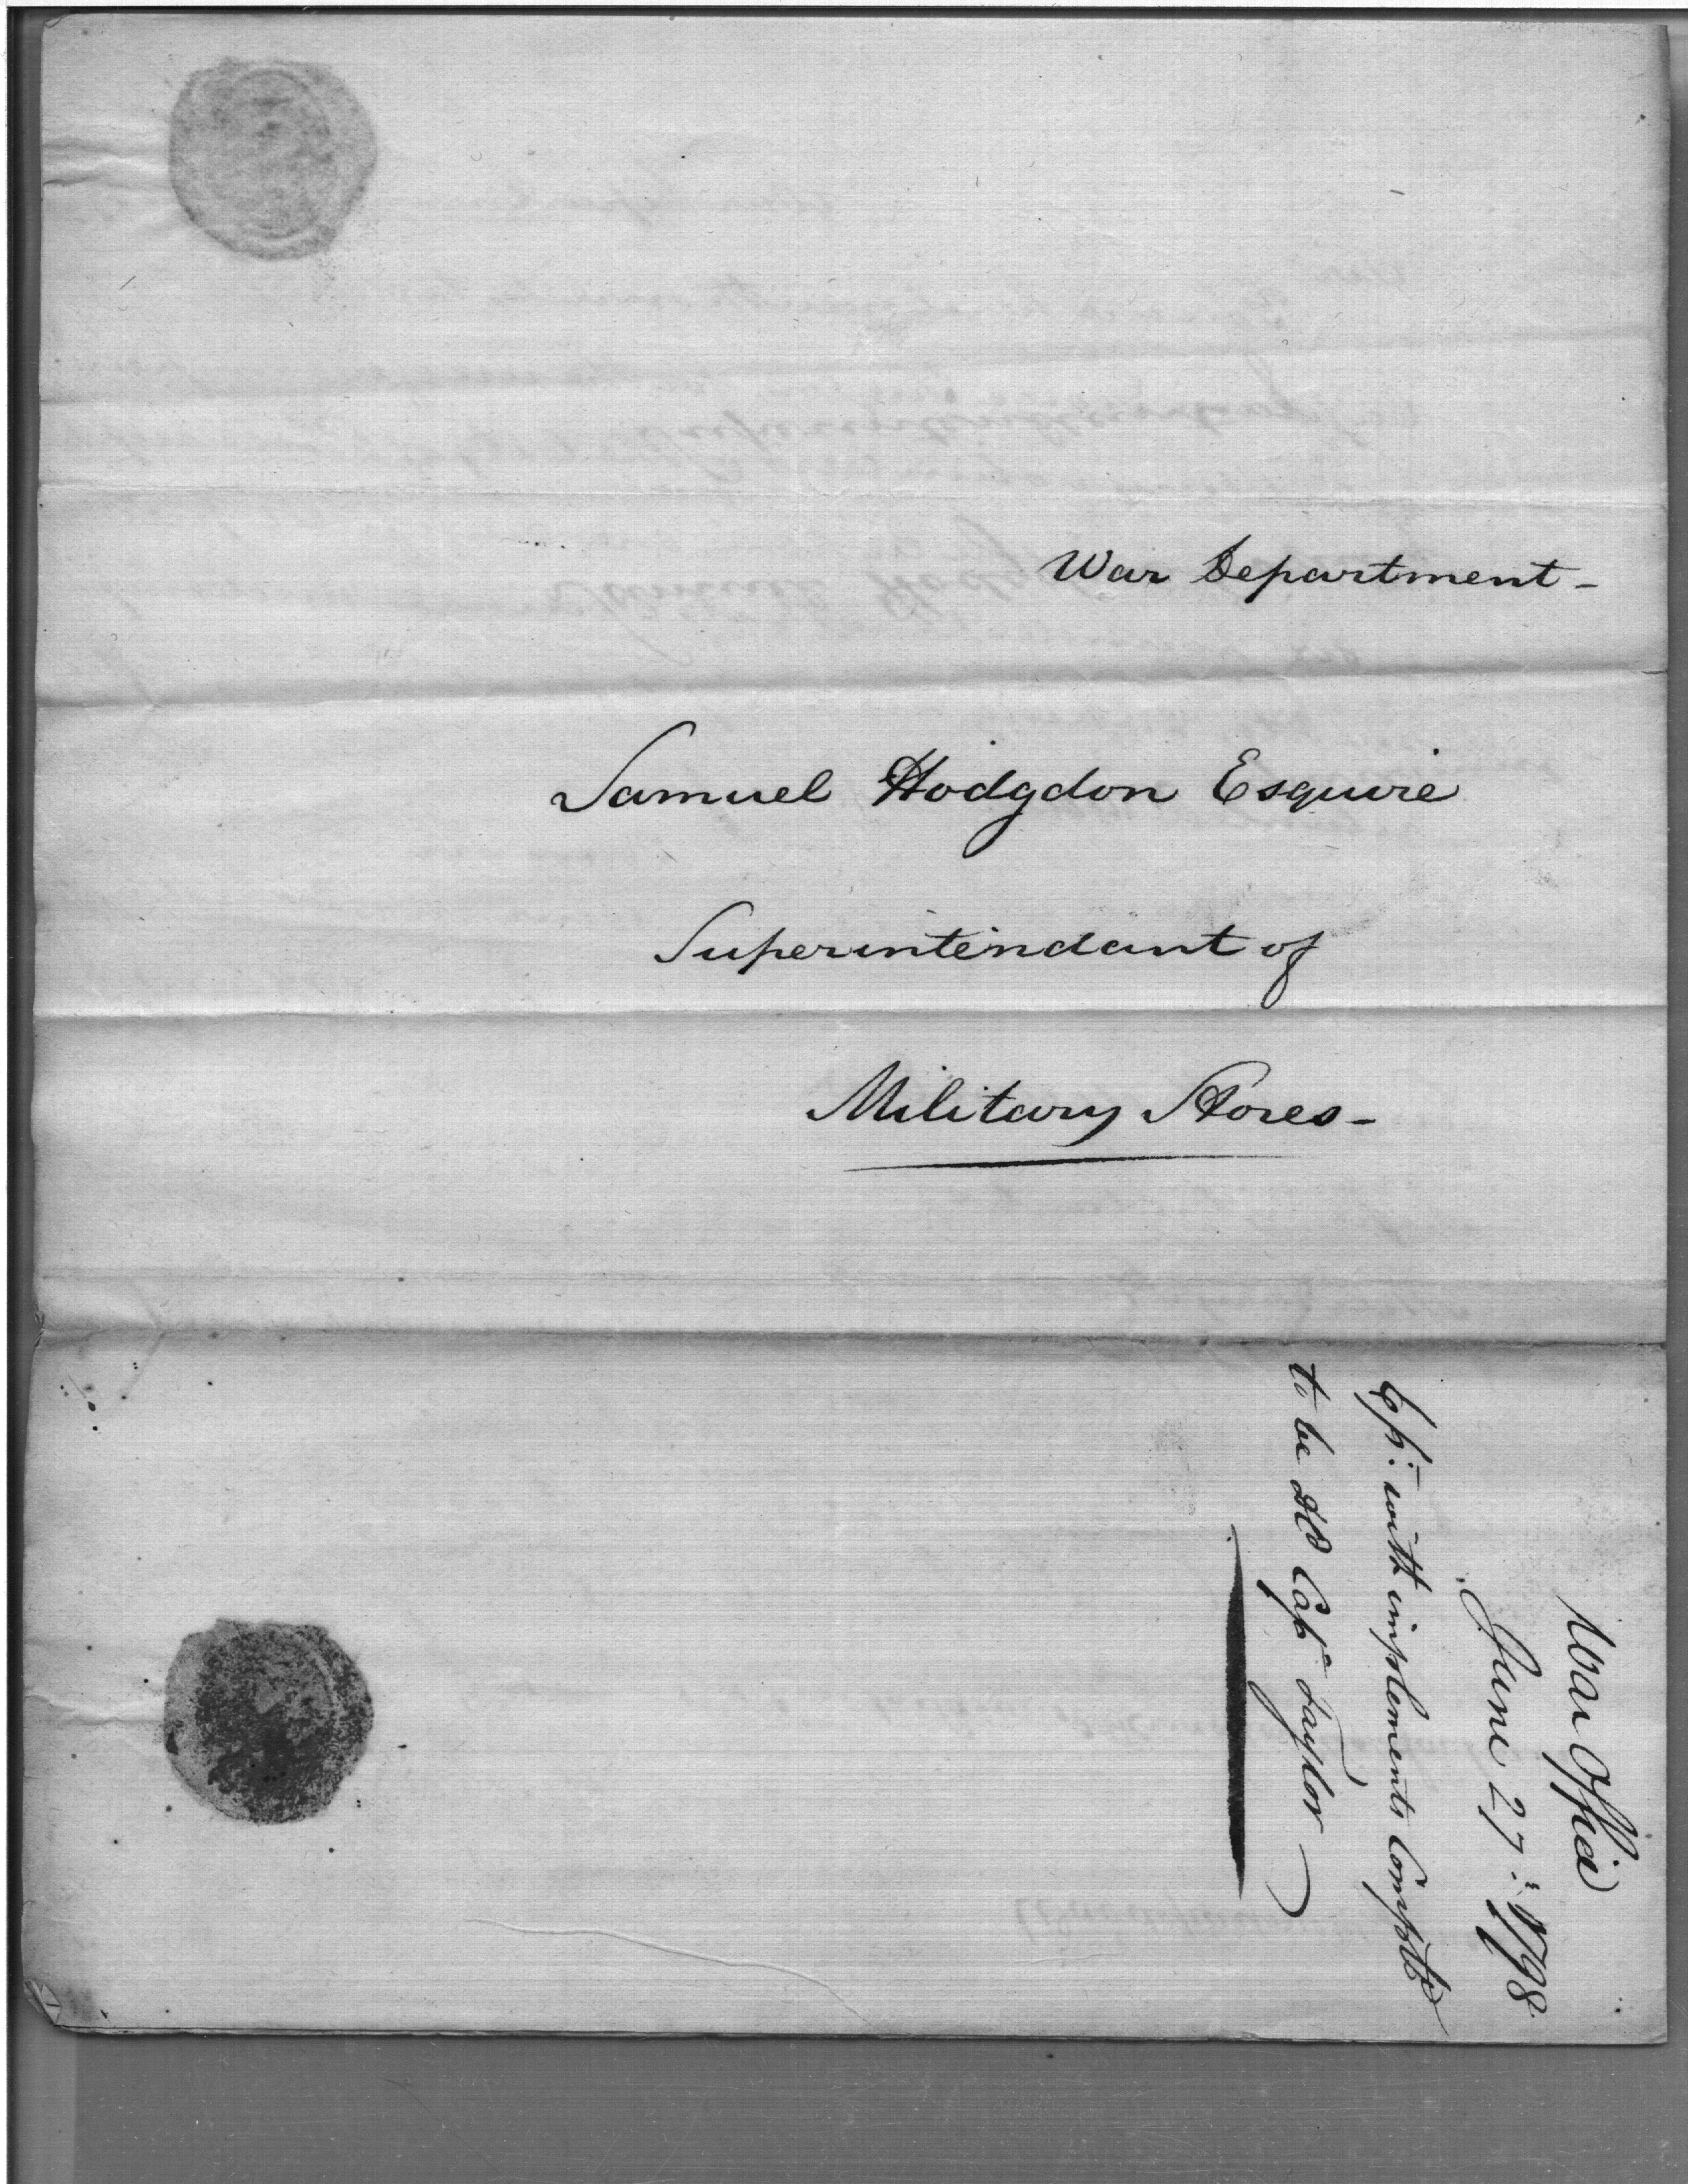 War Department -
Samuel Hodgdon Esquire
Superintendant of
Military Stores -
War Office
June 27: 1798
6 p: with implements Complete
to be dd Capn Taylor